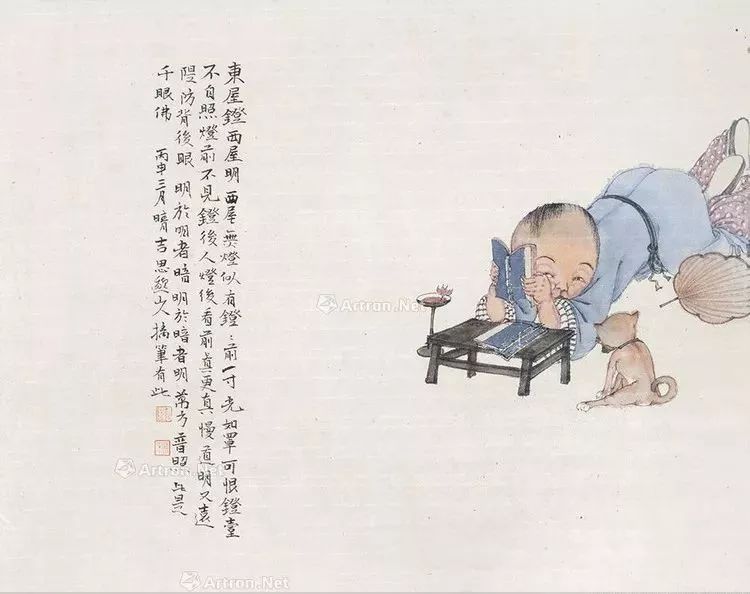 東屋鐙西屋明西屋無燈似有鐙〻前一寸光如罩可恨鐙臺
不自照燈前不見鐙後人燈後看前真更真慢道明又遠
隄防背後眼明於明者暗明於暗者明萬方普照此是
千眼佛 丙申三月 吉思山人摘筆有此
Artron.Net
Artron.Net
Artron.Net